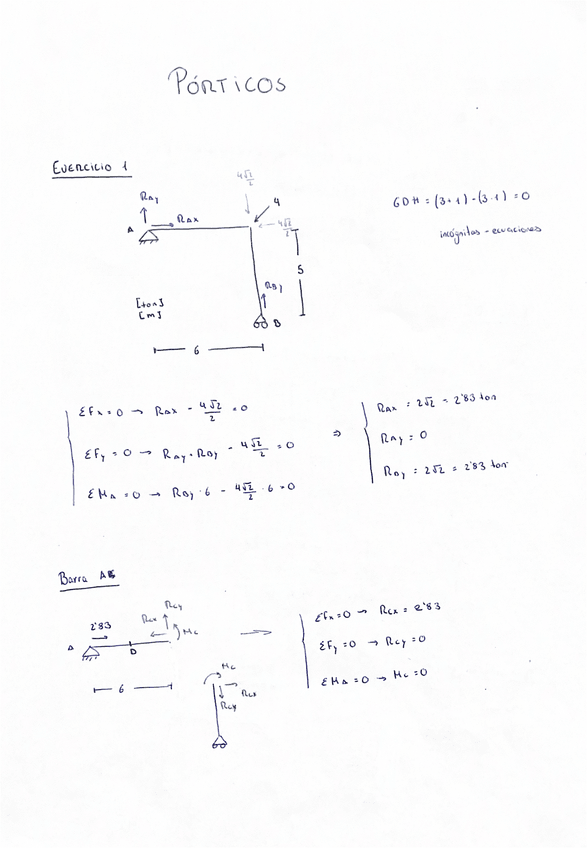 PÓRTICOS
EJERCICIO 1
4√2/2
RAy
4
RAX
4√2/2
A
GDH = (3+1)-(3·1) = 0
incógnitas - ecuaciones
5
RBy
[ton]
[m]
B
6
ΣFx = 0 → RAX - 4√2/2 = 0
ΣFy = 0 → RAy + RBy - 4√2/2 = 0
ΣMA = 0 → RBy · 6 - 4√2/2 · 6 = 0
⇒
RAX = 2√2 = 2'83 ton
RAy = 0
RBy = 2√2 = 2'83 ton
Barra
RCy
2'83
RCX
MC
A
D
6
MC
RCX
RCy
ΣFx = 0 → RCX = 2'83
ΣFy = 0 → RCy = 0
ΣMA = 0 → MC = 0